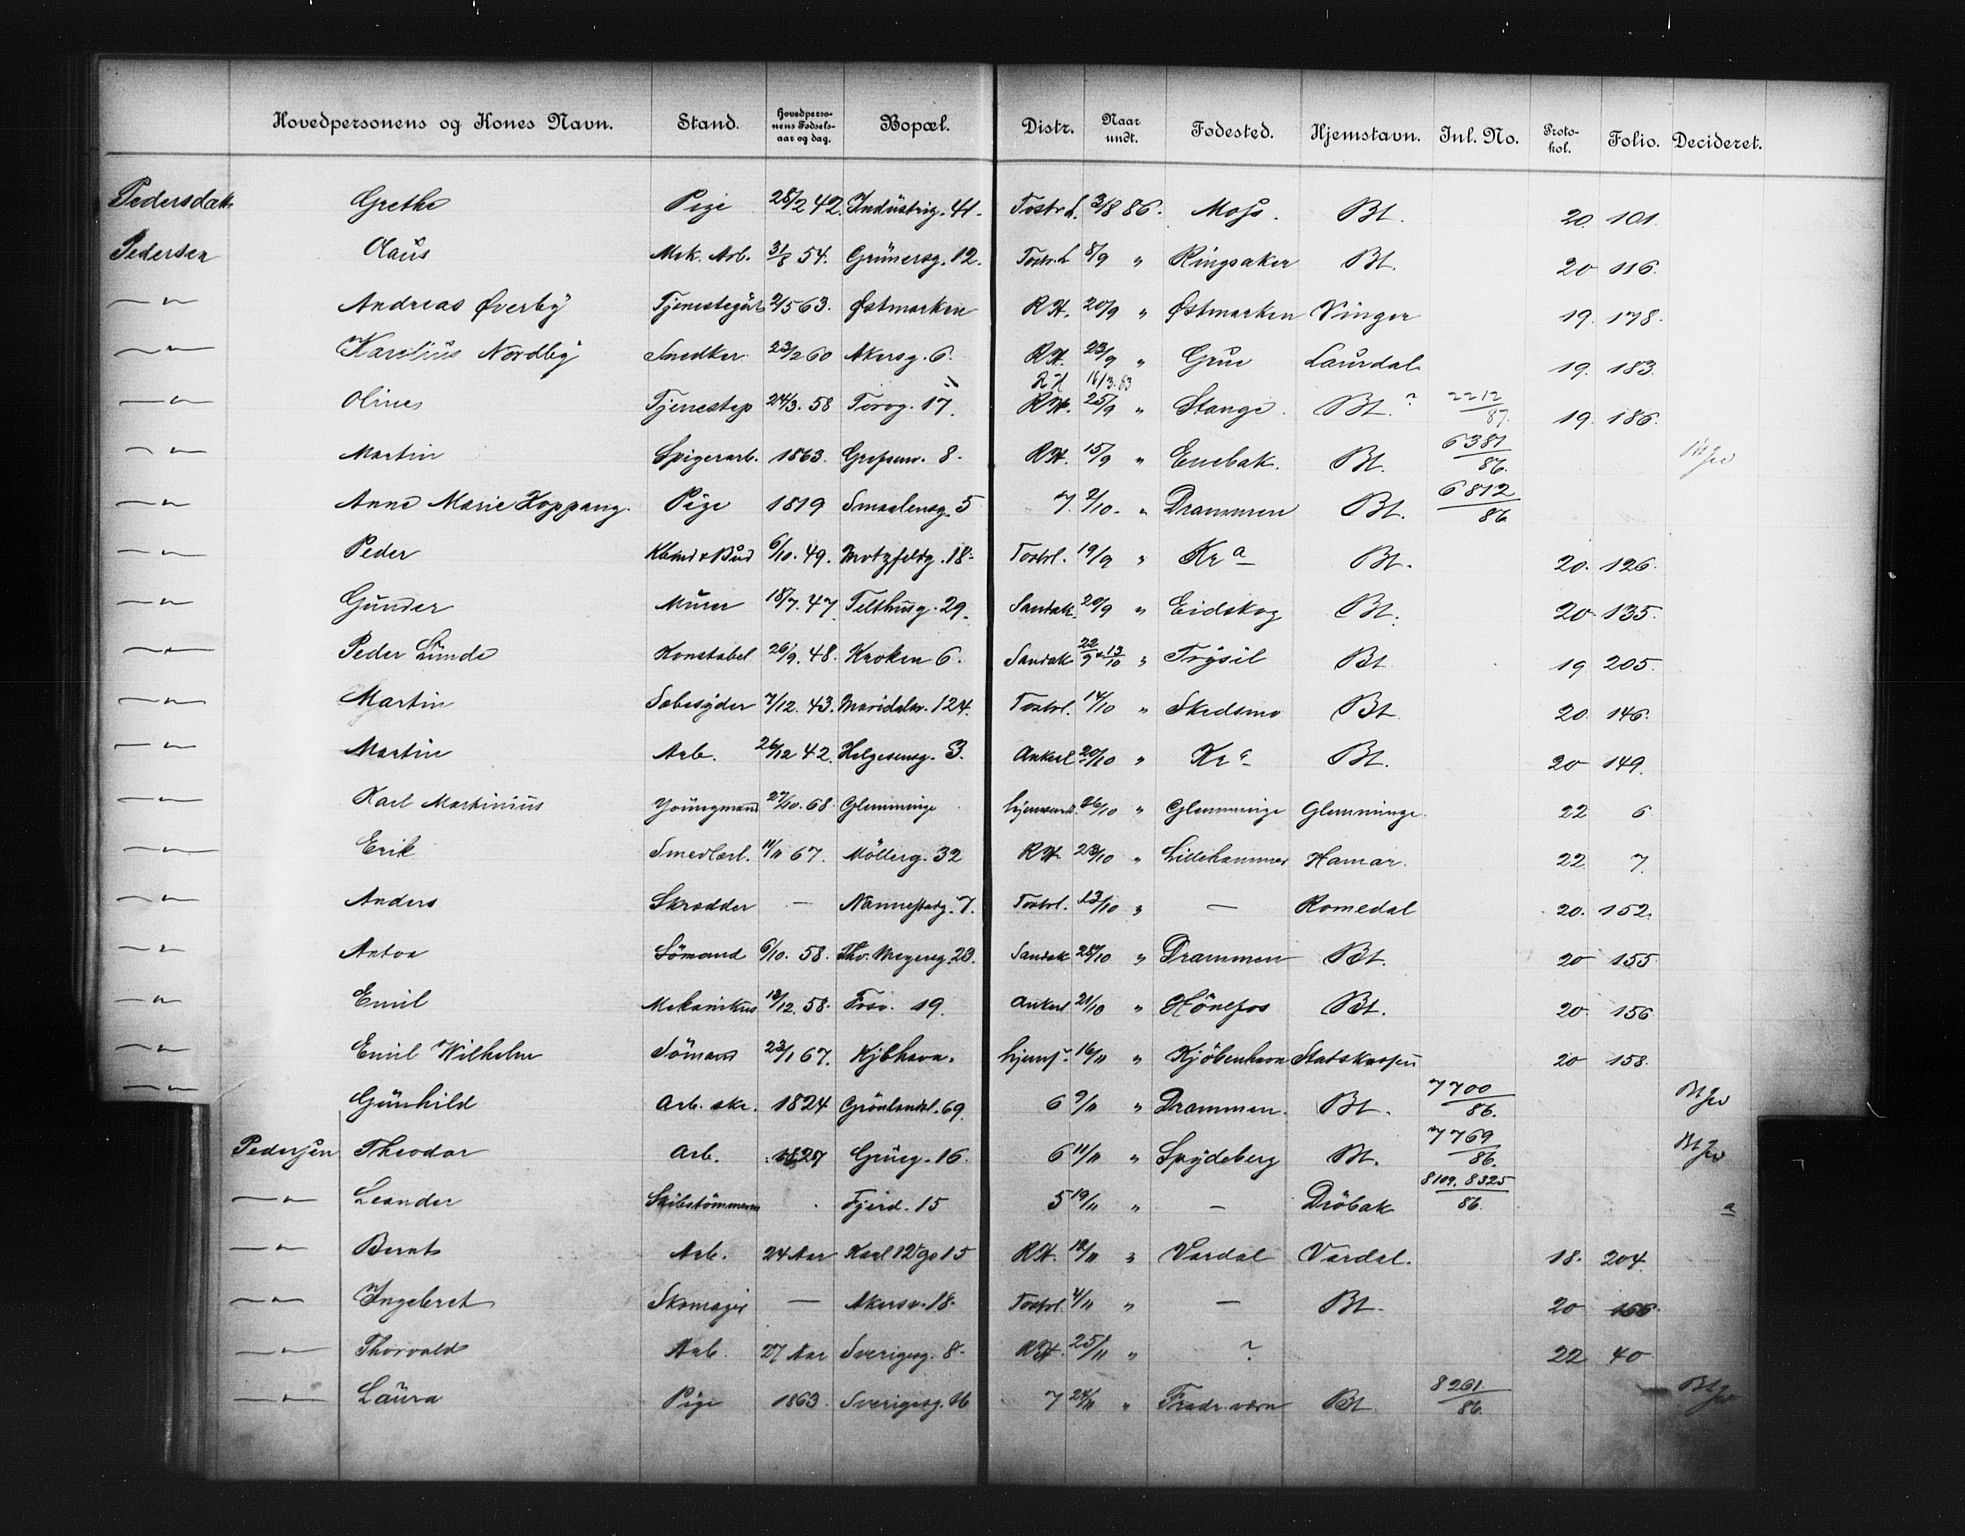 Hovedpersonens og Kones Navn. Stand. Hovedpersonens Fødselsaar og dag. Bopæl. Distr. Naar undt. Fødested. Hjemstavn. Inl. No. Protokol. Folio. Decideret.
Pedersdatt. Grethe Pige 28/2 42. Industrig. 41. Tostrl. 3/8 86. Moss. Bt. 20. 101.
Pedersen Claus Mek. Arb. 31/8 54. Grünersg. 12. Tostrl. 8/9 " Ringsaker Bt. 20 116.
—"— Andreas Øverby Tjenestegut 2/5 63. Østmarken R.H. 20/9 " Østmarken Vinger 19. 178.
—"— Karelius Nordby Snedker 23/2 60 Akersg. 6. R.H. 23/9 " Grue Laurdal 19. 183.
R H 16/3. 83
—"— Oline Tjenestep 24/3. 58 Torvg. 17. R.H. 25/9 " Stange. Bt. ? 2212/87. 19. 186.
—"— Martin Spigerarb. 1863. 8. R.H. 15/9 " Enebak. Bt. 6381/86.
—"— Anne Marie Koppang. Pige 1819 Smaalensg. 5 7. 2/10. " Drammen Bt. 6812/86
—"— Peder 6/10. 49. Motzfeldtg. 18. Tostrl. 19/9 " Kra Bt. 20. 126.
—"— Gunder Murer 18/7. 47. Telthusg. 29. Sandak. 20/9 " Eidskog Bt. 20. 135.
—"— Peder Lunde Konstabel 26/9. 48. Kroken 6. Sandak 22/9 + 13/10 " Trysil Bt. 19 205.
—"— Martin Sæbesyder 7/12. 43. Maridalsv. 124. Tostrl. 14/10 " Skedsmo Bt. 20. 146.
—"— Martin Arb. 26/12 42. Helgesensg. 3. Ankerl 20/10 " Kra Bt. 20 149.
—"— Karl Martinius Youngmand 27/10. 68. Glemminge 26/10 " Glemminge Glemminge. 22 6
—"— Erik Smedlærl. 11/11 67. Möllerg. 32 R.H. 23/10 " Lillehammer Hamar. 22. 7.
—"— Anders Skrædder — Nannestadg. 7. Tostrl. 13/10 " — Romedal 20. 152.
—"— Anton Sömand 6/10. 58. Thv. Meyersg. 23. Sandak 28/10 " Drammen Bt. 20 155
—"— Emil Mekanikus 12/12. 58. Fosv. 19. Ankerl 21/10 " Hönefos Bt. 20. 156
—"— Emil Wilhelm Sömand 23/1 67. Kjbhavn. 16/11 " Kjöbenhavn Statskassen 20 158.
—"— Gunhild Arb. ske. 1824 Grönlandsl. 69. 6 9/11 " Drammen. Bt. 7700/86.
Pedersen Theodor Arb. 1827 Grueg. 16. 6 11/11 " Spydeberg Bt. 7769/86.
—"— Leander Skibstömmerm . Fjerd. 15 5 19/11 " — Dröbak 8109. 8325/86. a
—"— Bernt Arb. 24 Aar Karl 12's g 15 R.H. 12/11 " Vardal Vardal. 18. 204.
—"— Ingebret Skomager — Akersv. 18. Tostrl. 4/11 " — Bt. 20 166.
—"— Thorvald Arb. 27 Aar Sverigesg. 8. R.H. 25/11 " ? 22 40
—"— Laura Pige 1863. Sverigesg. 16 7 24/11 " Fredr.værn Bt 8261/86.